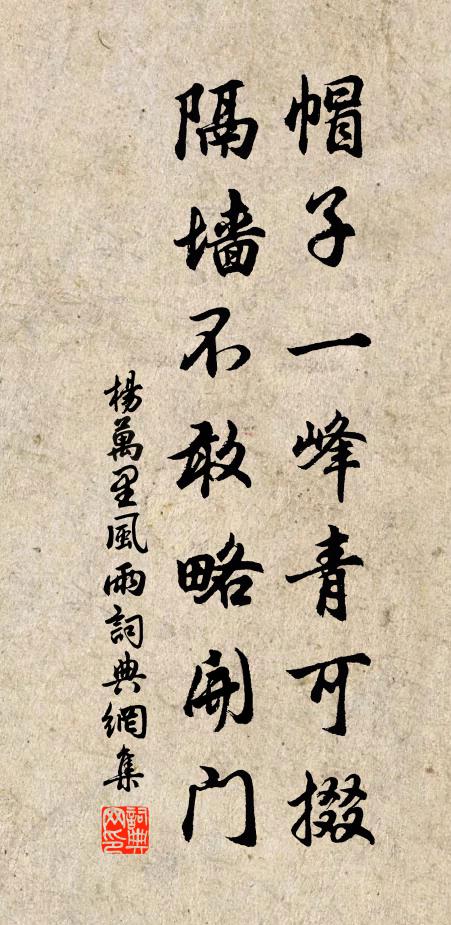 帽子一峰青可掇
隔墙不敢略開门
楊萬里風雨詞典網集
詞典网印